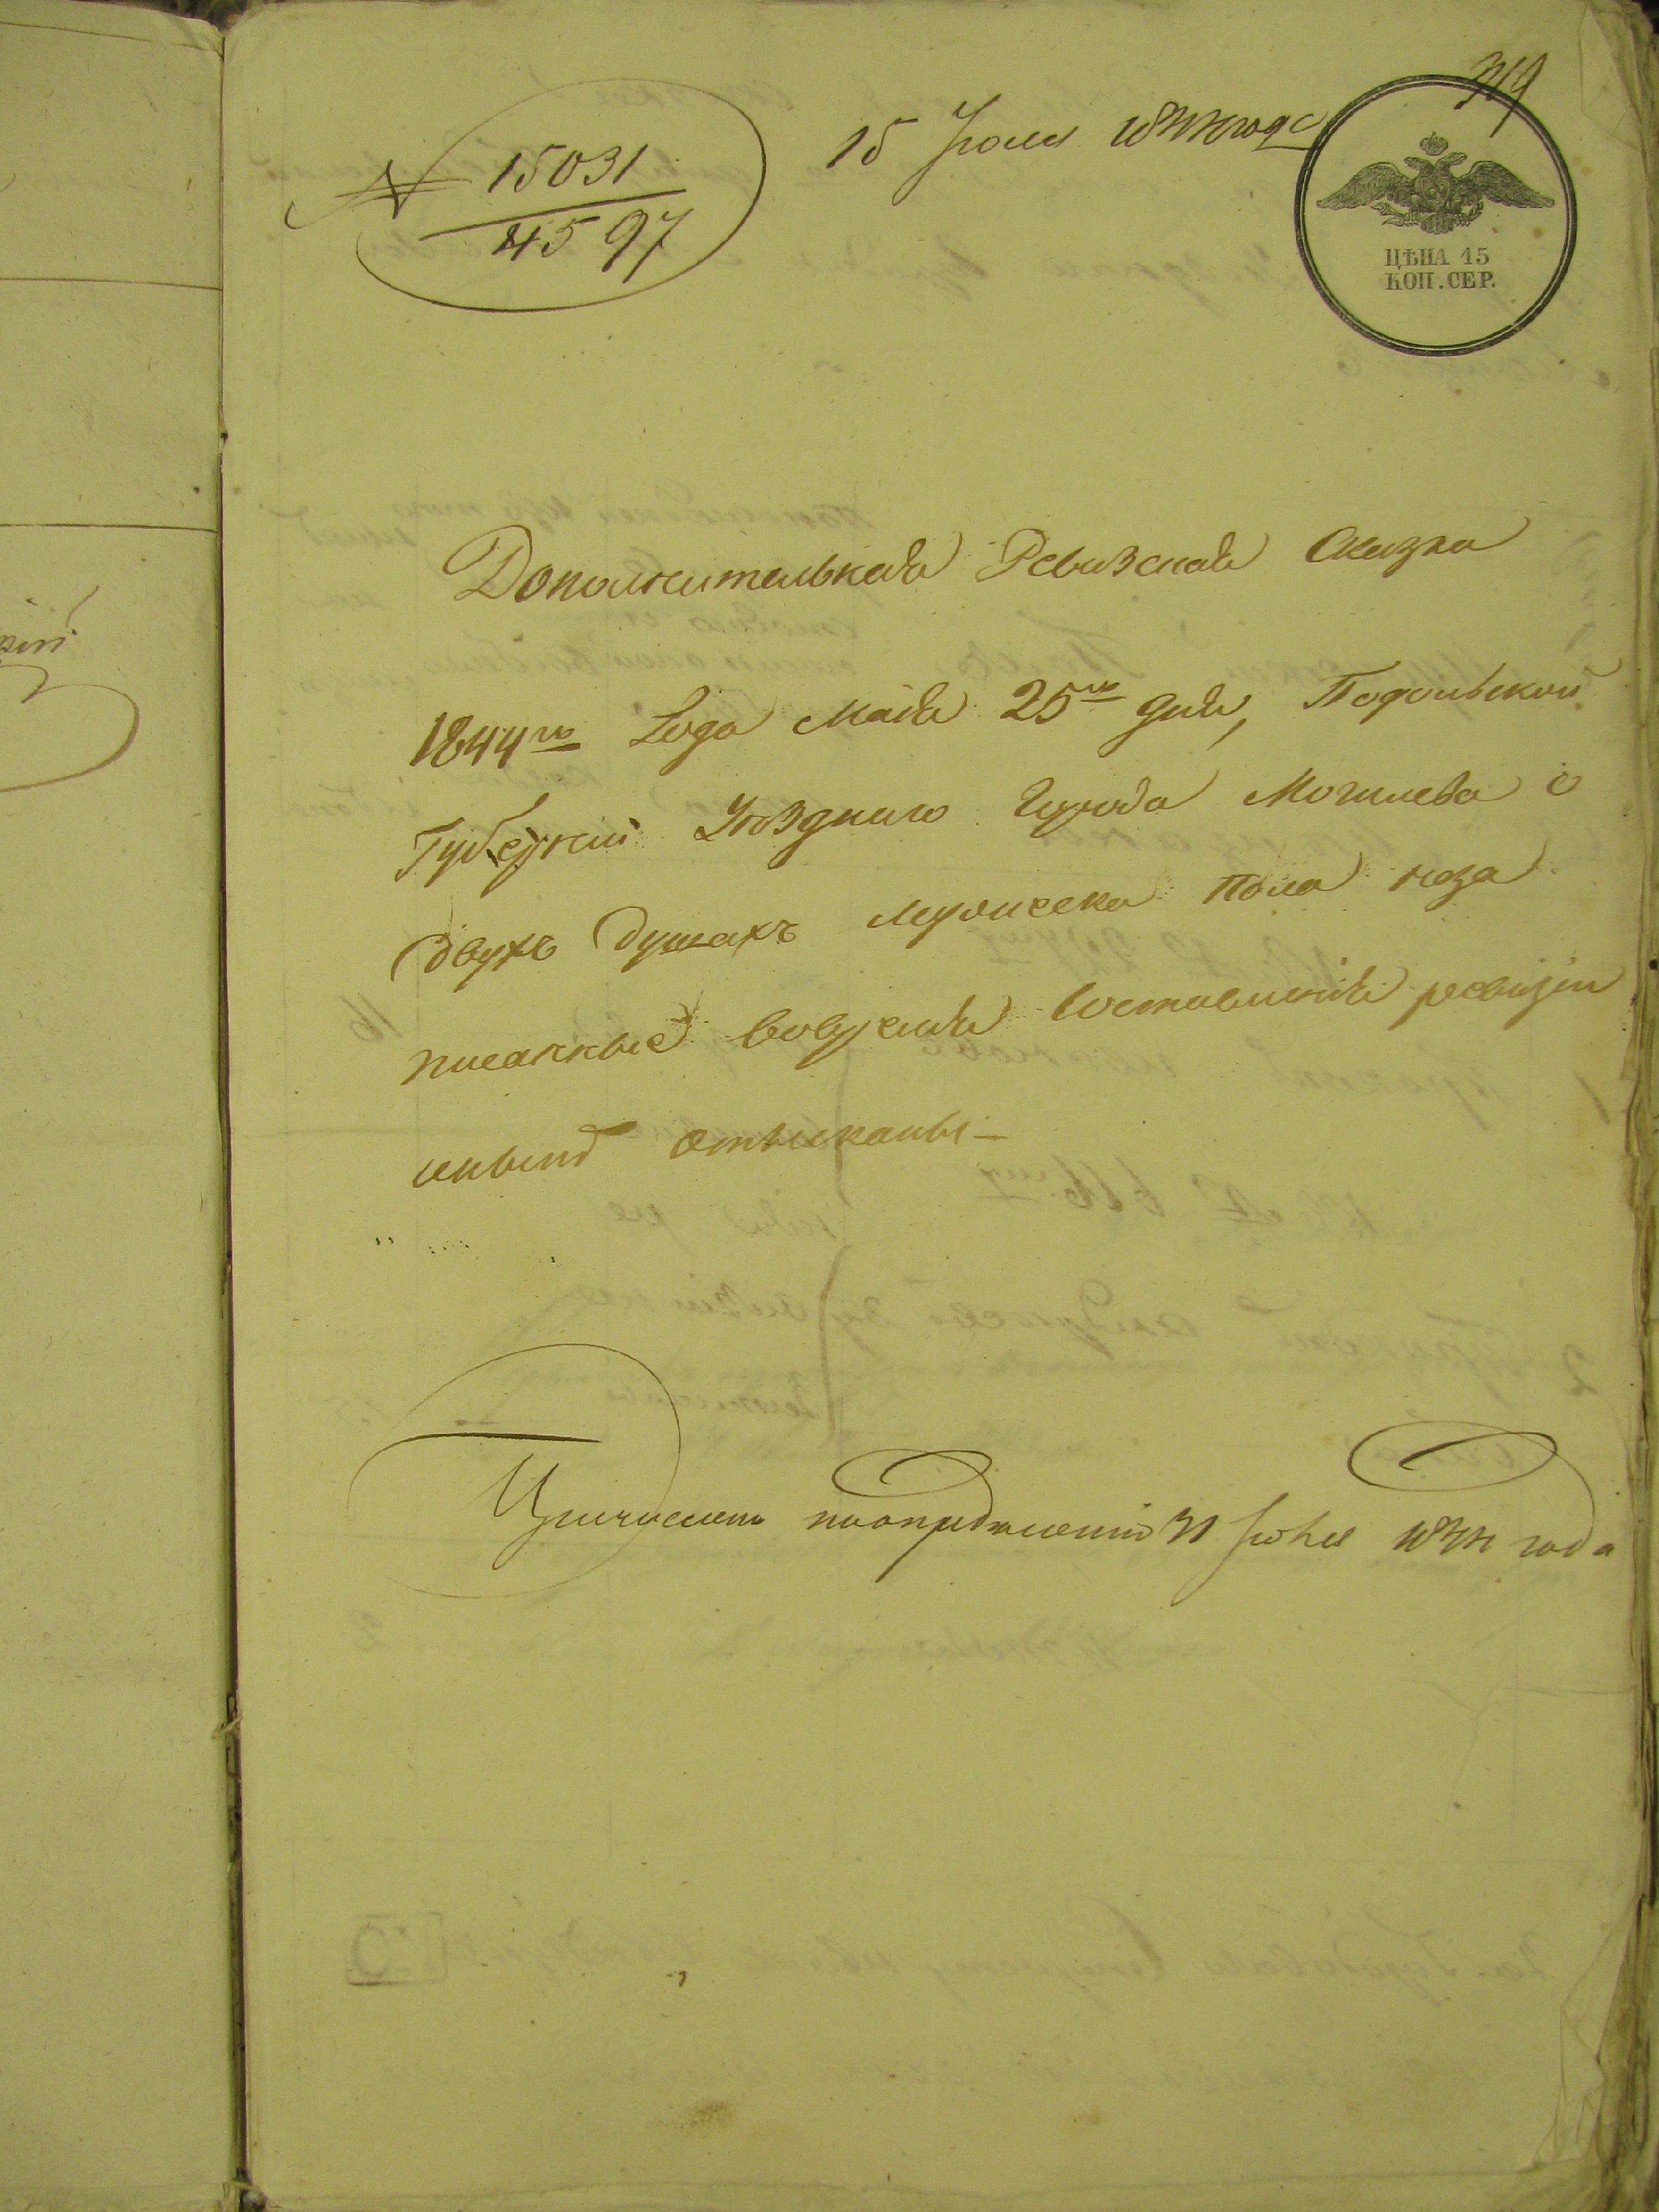 319
№ 15031
4597
15 Іюля 1844 года
ЦѢНА 15
КОП. СЕР.
Дополнительная Ревизская Сказка
1844го Года Маія 25го дня, Подольской
Губерніи Уѣзднаго Города Могилева о
двухъ душахъ мужеска пола неза
писанные вовремя составленія ревизіи
иныне отысканы
Причислены по определенію 31 Іюля 1844 года